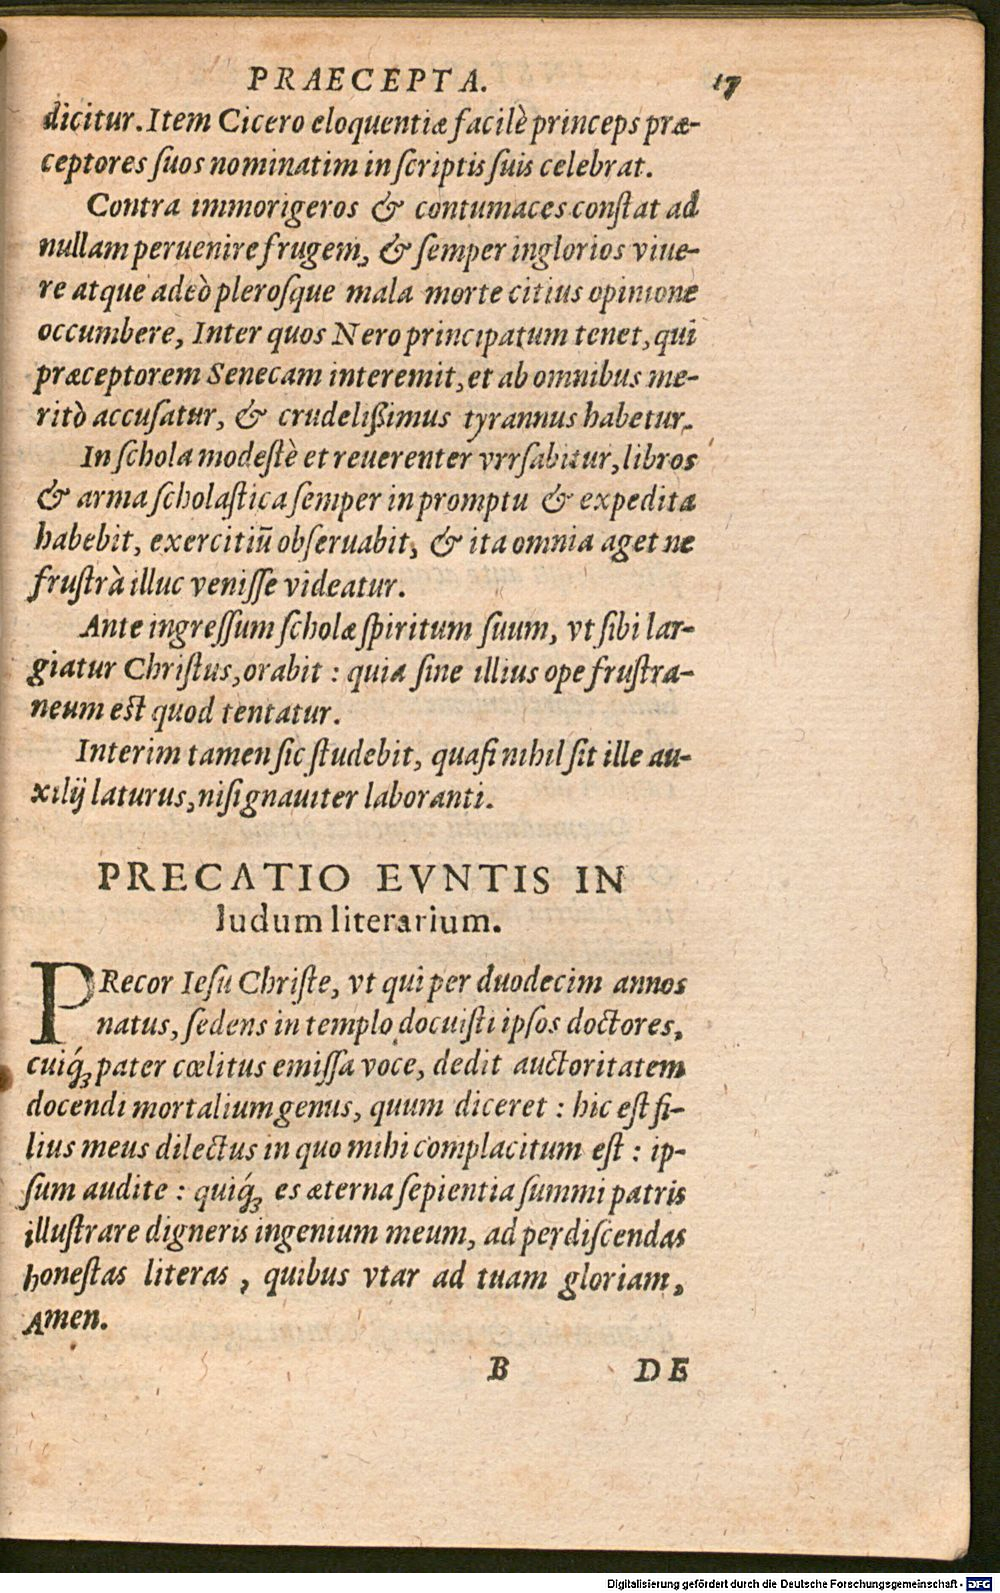 PRAECEPTA. 17
dicitur. Item Cicero eloquentiæ facilè princeps præ-
ceptores ſuos nominatim in ſcriptis ſuis celebrat.
Contra immorigeros & contumaces conſtat ad
nullam peruenire frugem, & ſemper inglorios viue-
re atque adeò pleroſque mala morte citius opinione
occumbere, Inter quos Nero principatum tenet, qui
præceptorem Senecam interemit, et ab omnibus me-
ritò accuſatur, & crudelißimus tyrannus habetur.
In ſchola modeſtè et reuerenter vrrſabitur, libros
& arma ſcholaſtica ſemper in promptu & expedita
habebit, exercitiū obſeruabit, & ita omnia aget ne
fruſtrà illuc veniſſe videatur.
Ante ingreſſum ſcholæ ſpiritum ſuum, vt ſibi lar-
giatur Chriſtus, orabit : quia ſine illius ope fruſtra-
neum eſt quod tentatur.
Interim tamen ſic ſtudebit, quaſi nihil ſit ille au-
xilij laturus, niſi gnauiter laboranti.
PRECATIO EVNTIS IN
ludum literarium.
PRecor Ieſu Chriſte, vt qui per duodecim annos
natus, ſedens in templo docuiſti ipſos doctores,
cuiq́; pater cœlitus emiſſa voce, dedit auctoritatem
docendi mortalium genus, quum diceret : hic eſt fi-
lius meus dilectus in quo mihi complacitum eſt : ip-
ſum audite : quiq́; es æterna ſepientia ſummi patris
illuſtrare digneris ingenium meum, ad perdiſcendas
honeſtas literas, quibus vtar ad tuam gloriam,
Amen.
B DE
Digitalisierung gefördert durch die Deutsche Forschungsgemeinschaft - DFG